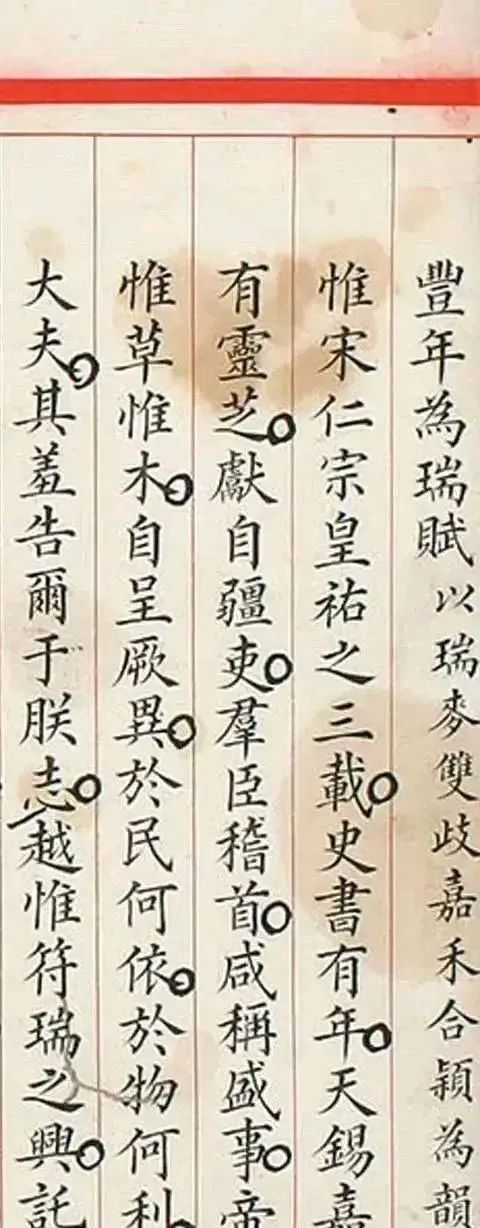 豐年為瑞賦以瑞麥雙歧嘉禾合穎為韻
惟宋仁宗皇祐之三載史書有年天錫嘉
有靈芝獻自疆吏羣臣稽首咸稱盛事帝
惟草惟木自呈厥異於民何依於物何利
大夫其羞告爾于朕志越惟符瑞之興託